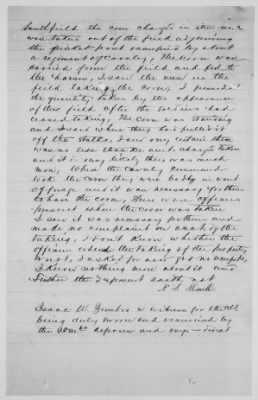 the corn charged in item no 2
was taken out of the field adjoining
the picket post occupied by about
a regiment of cavalry. The corn was
carried from the field and fed to
the horses, I saw the men in the
field taking the corn, I
the quantity taken by the appearance
of the field after the soldiers had
ceased taking, The corn was standing
and I saw where they had pulled it
off the stalks, I am very certain there
was no less than the amt. charged taken
and it is very likely there was much
more, When the cavalry command
took the corn they were badly in want
of forage and it was necessary for them
to have the corn, There were officers
present when the corn was taken
I saw it was necessary for them and
made no complaint on acct of the
taking, I don't know whether the
officers the taking of the property
or not, I asked for and got no receipts,
I know nothing more about it and
further the deponent saith not
Isaac W. a witness for the Clt
being duly sworn and examined by
the deposes and says - direct